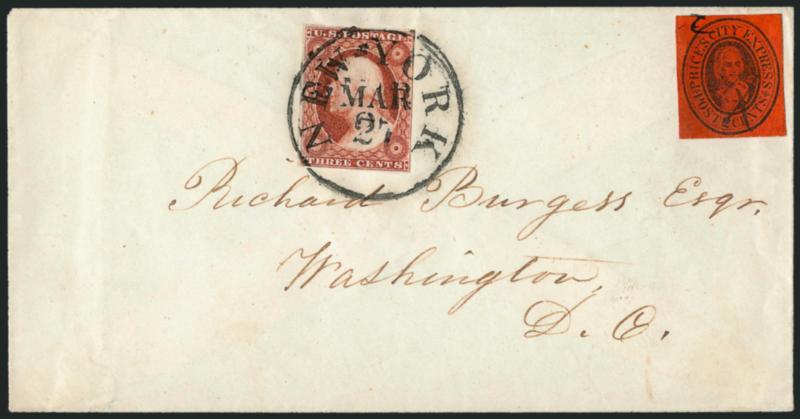 U.S. POSTAGE
THREE CENTS
NEW-YORK
MAR
27
PRICE'S CITY EXPRESS
POST 2 CENTS
Richard Burgess Esqr.
Washington,
D. C.